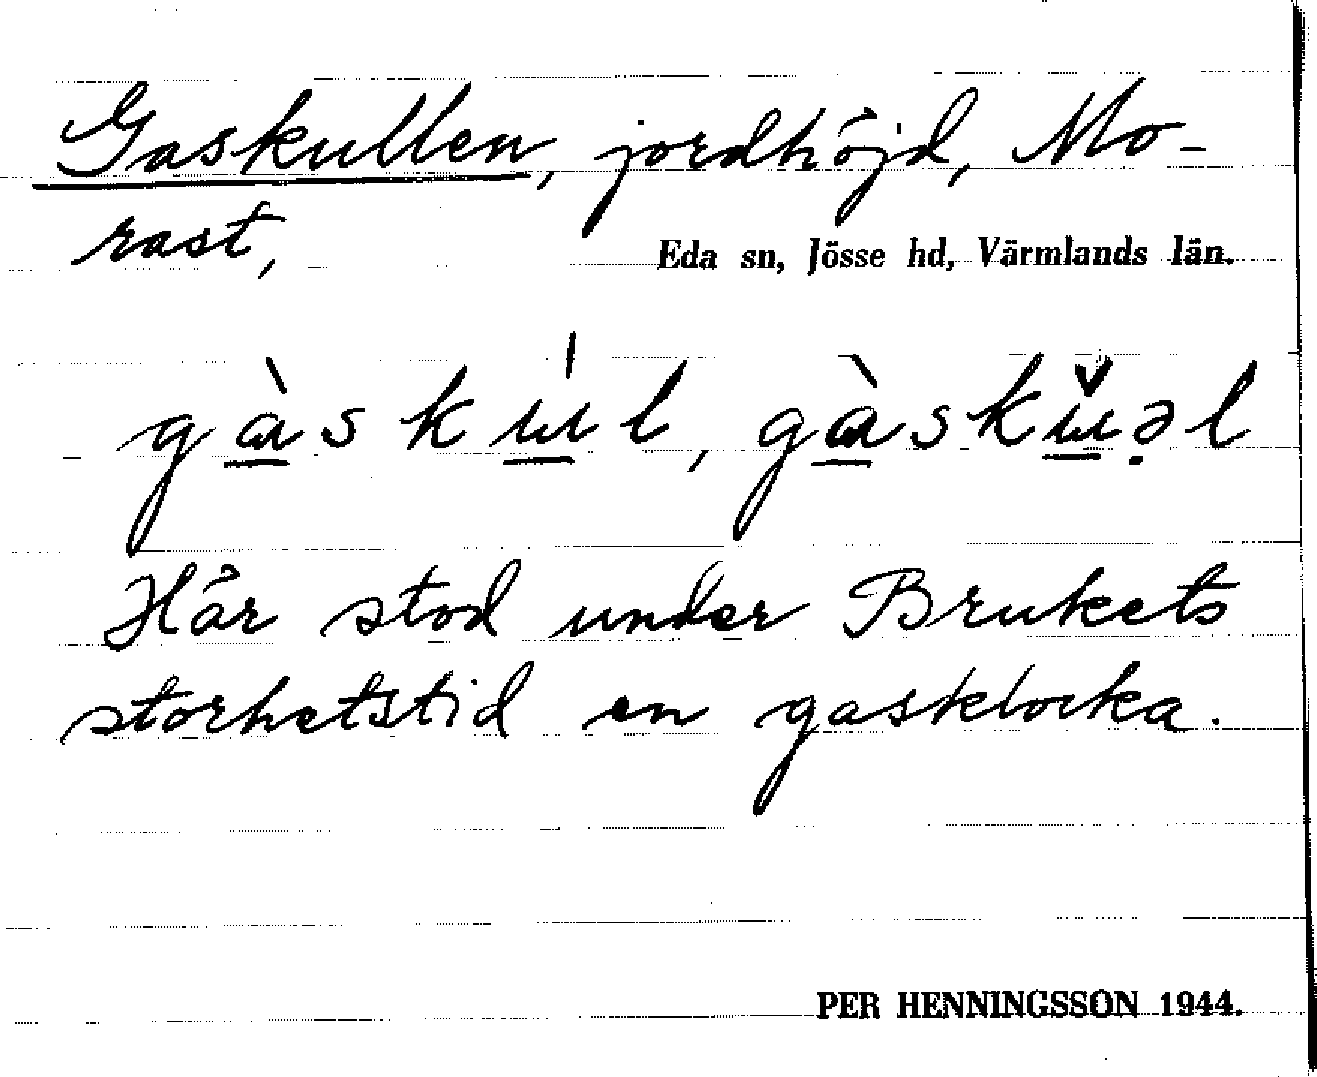 Gaskullen, jordhöjd, Mo-
rast,
Eda sn, Jösse hd, Värmlands län.
gàskúl, gàskŭəl
Här stod under Brukets
storhetstid en gasklocka.
PER HENNINGSSON 1944.